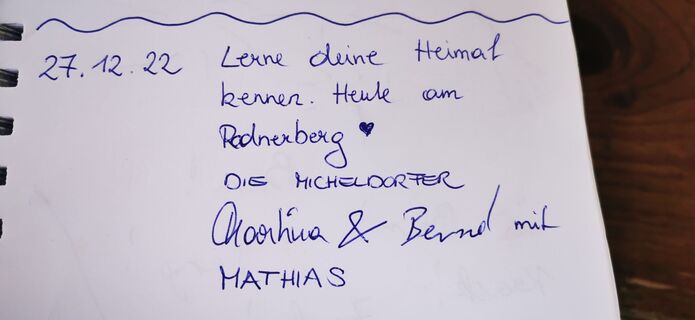 27.12.22 Lerne deine Heimat
kennen. Heute am
Radnerberg ♥
DIE MICHELDORFER
Martina & Bernd mit
MATHIAS